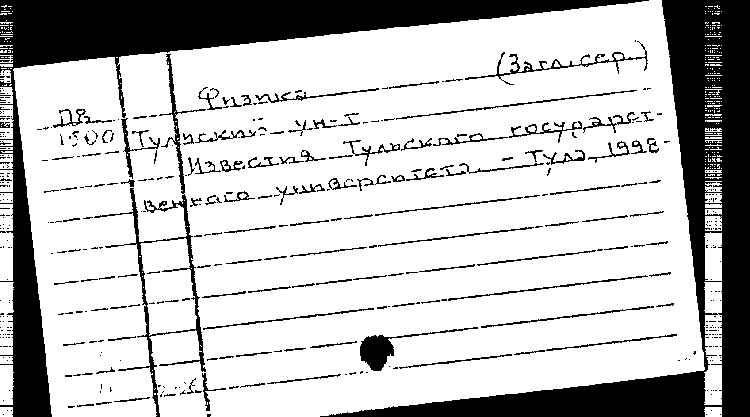 Физика (Загл. сер.)
ПВ
1500 Тульский ун-т
Известия Тульского государст-
венного университета. - Тула, 1998-